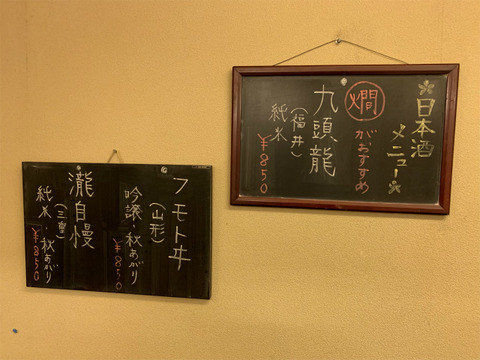 日本酒
メニュー
燗
がおすすめ
九頭龍
(福井)
純米
¥850
フモトヰ
(山形)
吟醸・秋あがり
¥850
瀧自慢
(三重)
純米・秋あがり
¥850